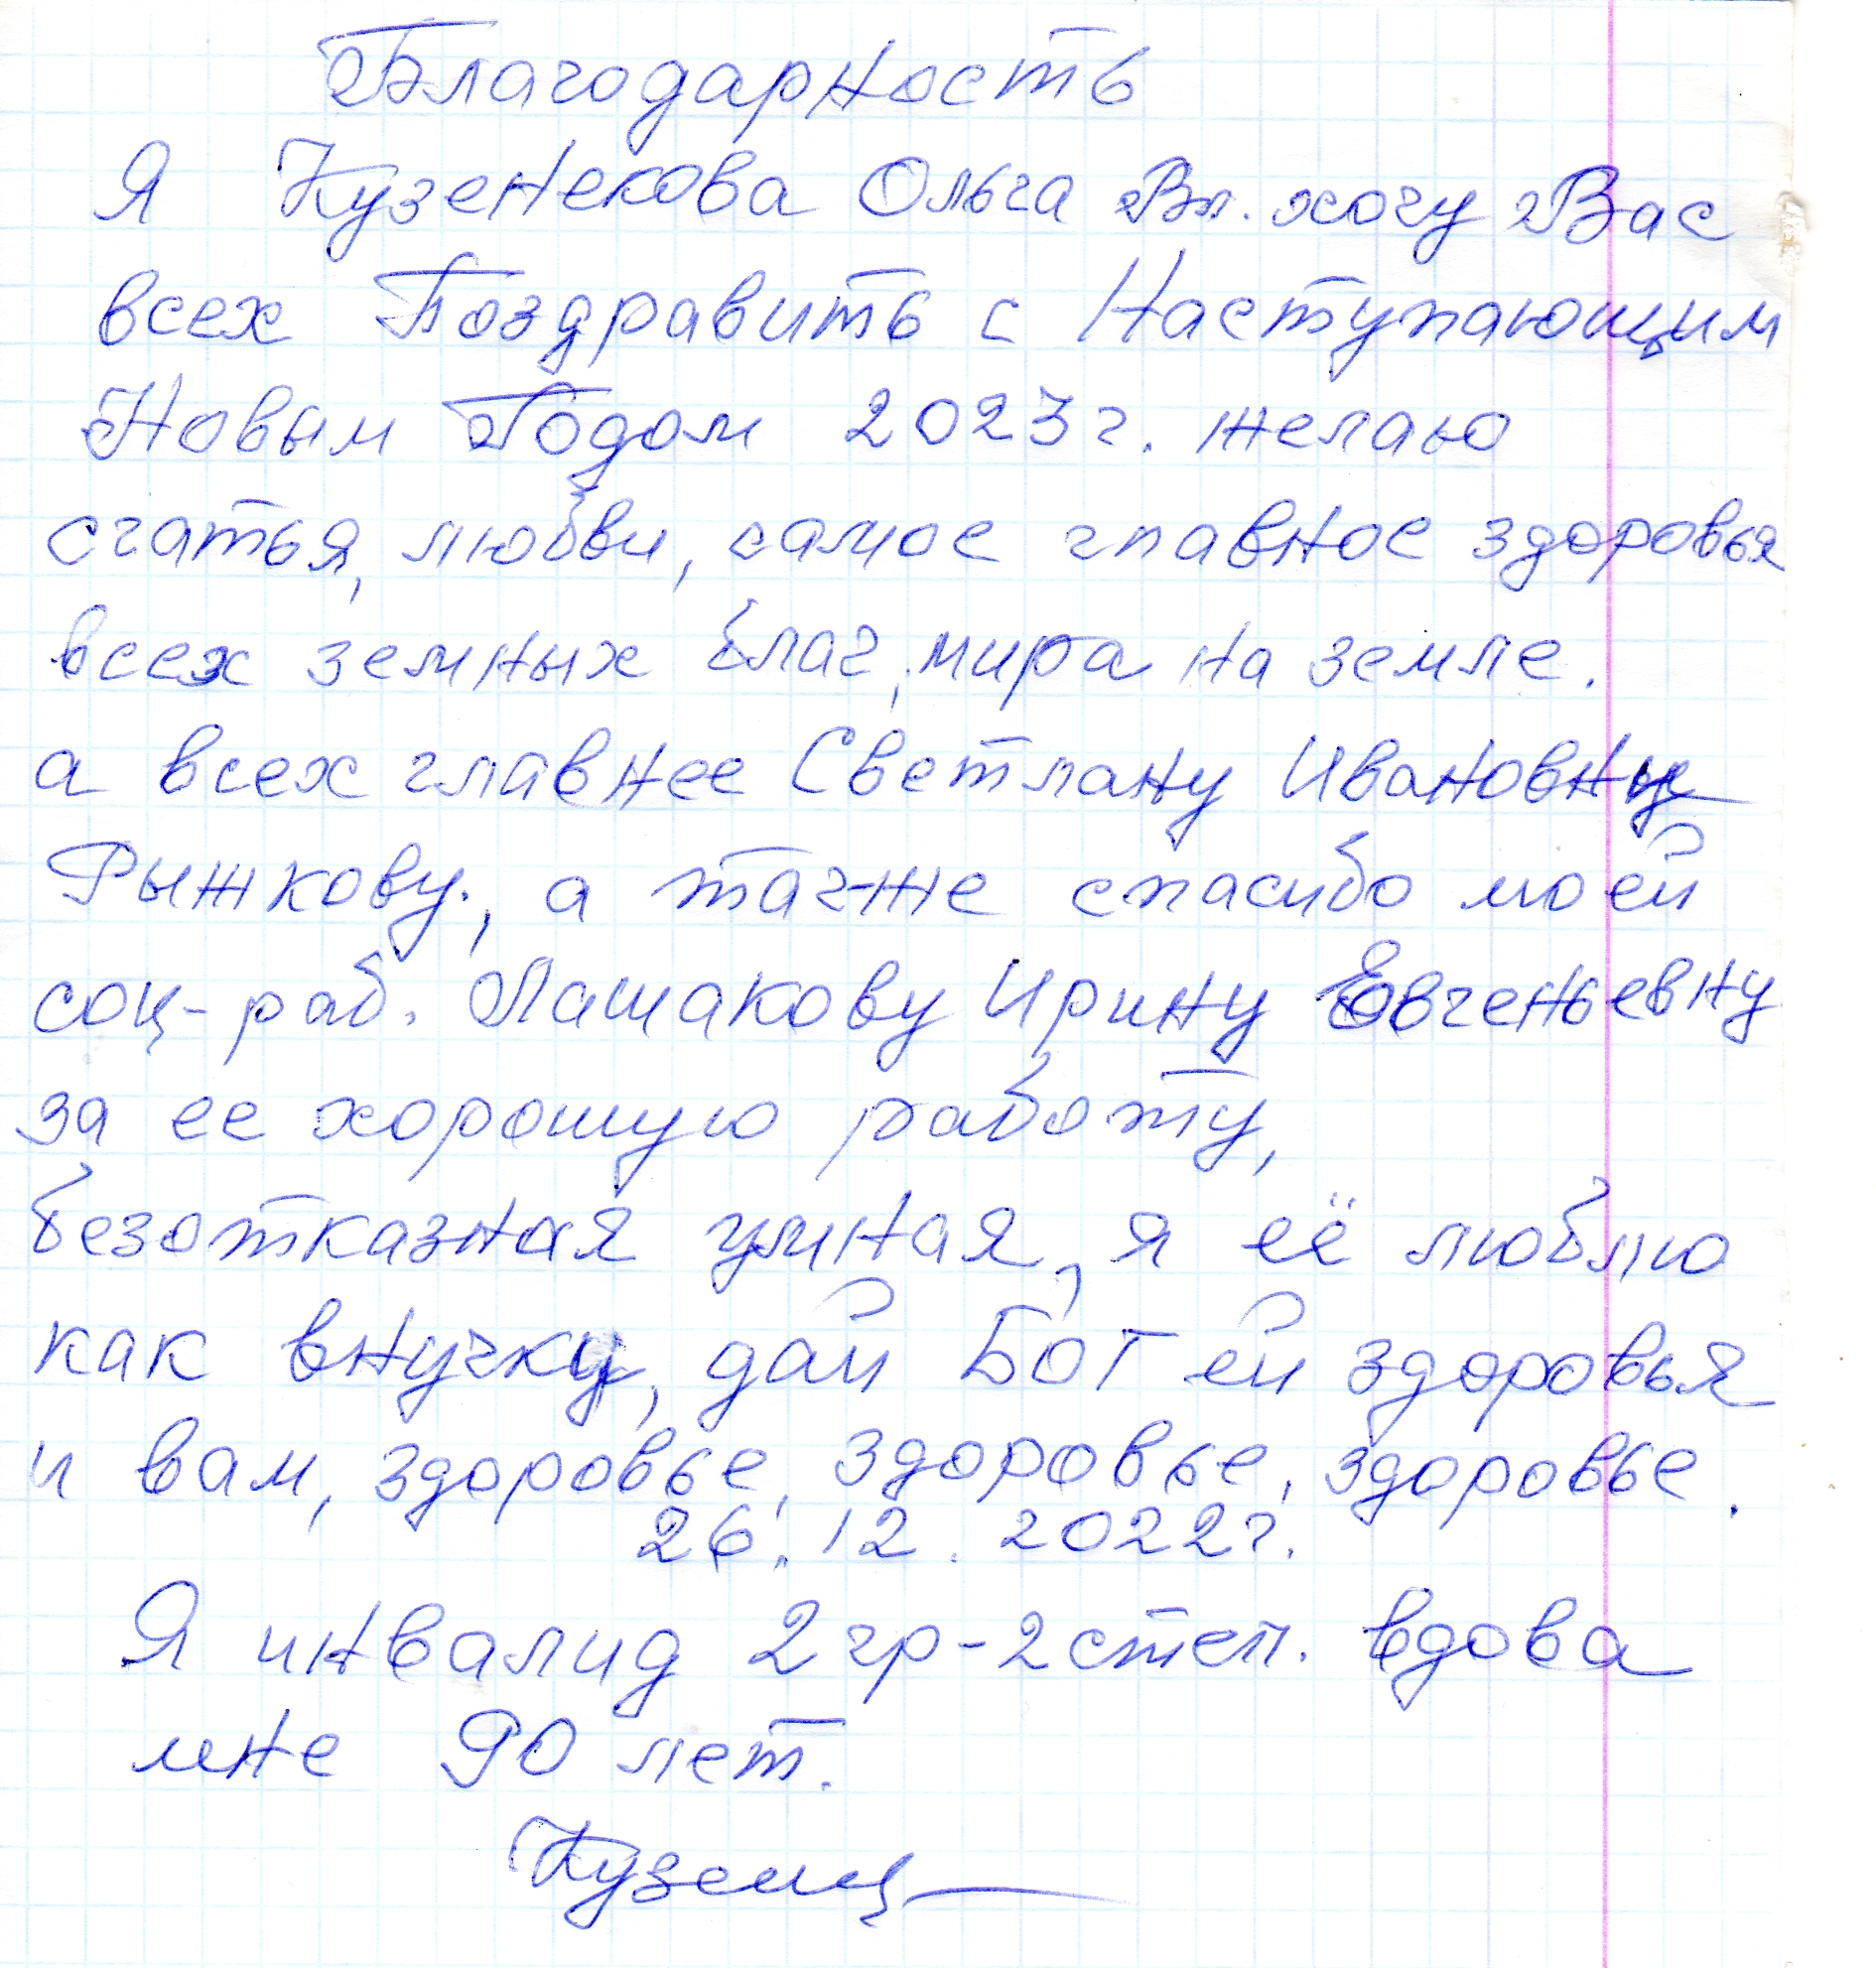 Благодарность
Я Кузенекова Ольга Вл. хочу Вас
всех Поздравить с Наступающим
Новым Годом 2023г. желаю
счатья, любви, самое главное здоровья
всех земных благ, мира на земле.
а всех главнее Светлану Ивановну
Рыжкову., а тагже спасибо моей
соц-раб. Лашакову Ирину Евгеньевну
за ее хорошую работу,
безотказная умная, я её люблю
как внучку, дай БОГ ей здоровья
и вам, здоровье, здоровье, здоровье.
26.12.2022г.
Я инвалид 2гр-2степ. вдова
мне 90 лет.